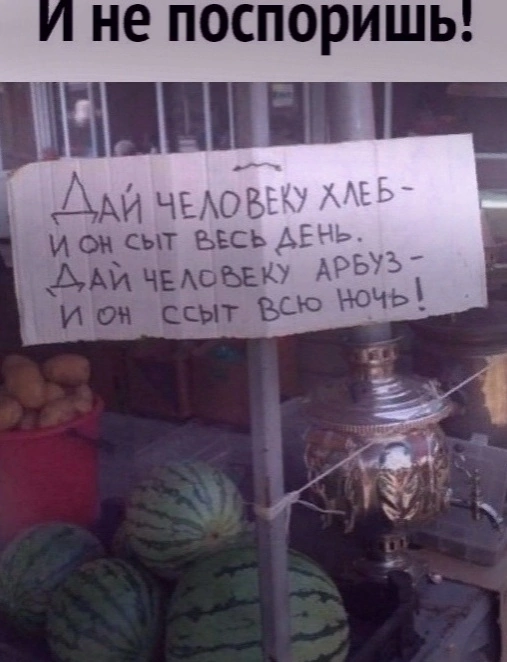 И не поспоришь!
ДАЙ ЧЕЛОВЕКУ ХЛЕБ-
И ОН СЫТ ВЕСЬ ДЕНЬ.
ДАЙ ЧЕЛОВЕКУ АРБУЗ-
И ОН ССЫТ ВСЮ НОЧЬ!